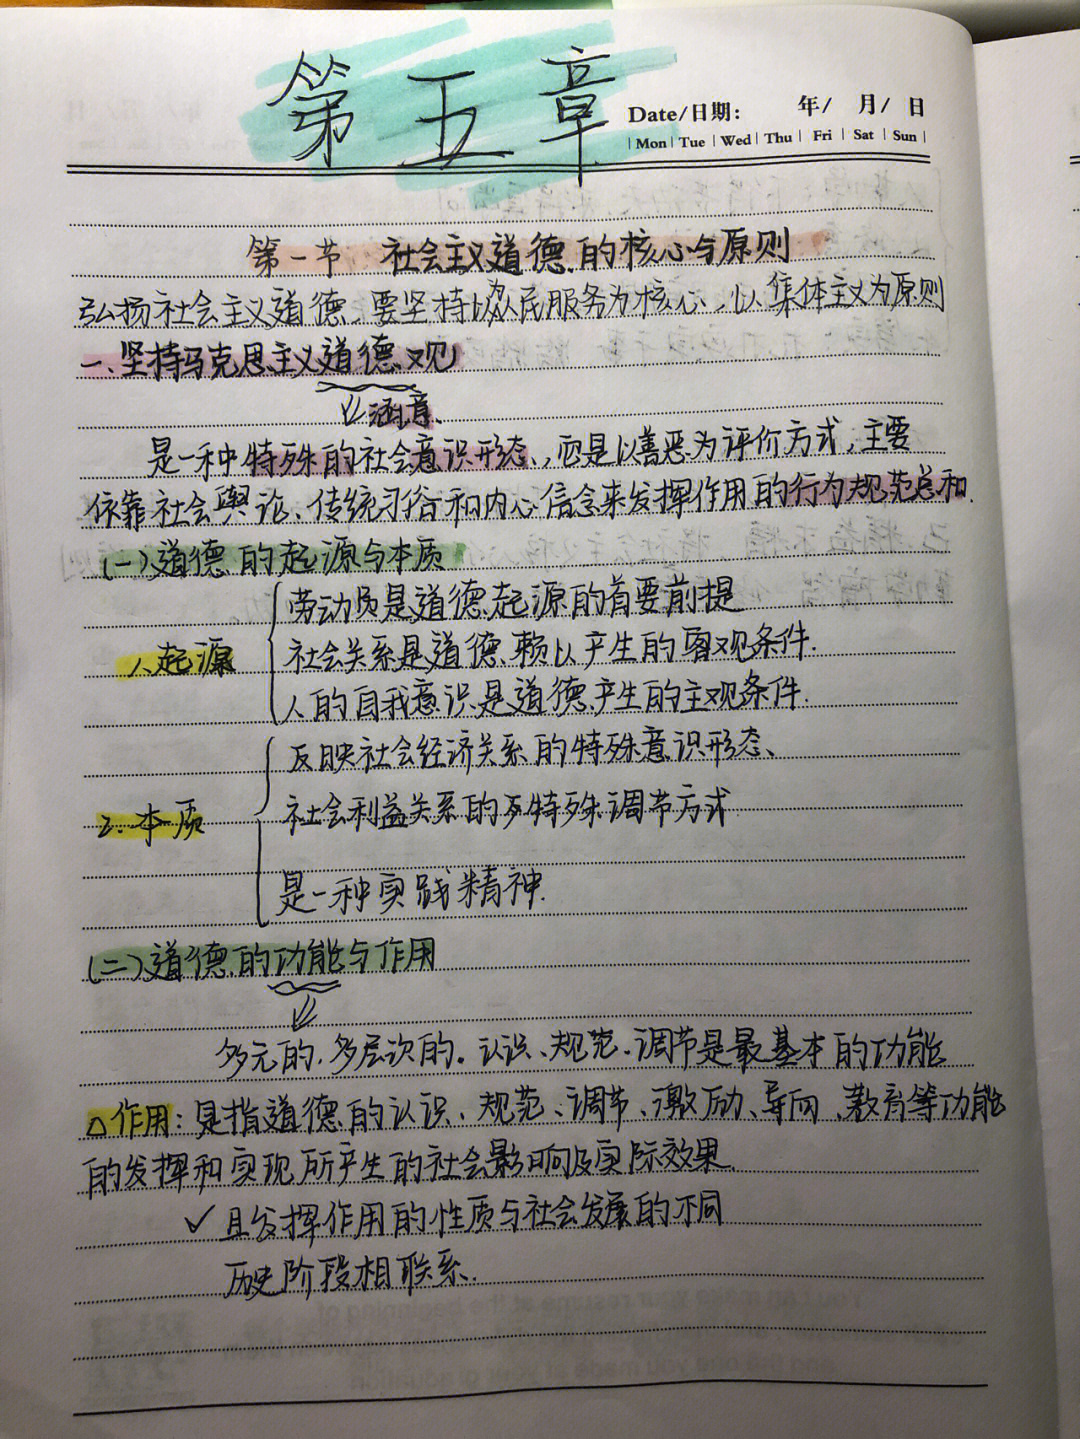 第五章
Date/日期: 年/ 月/ 日
Mon Tue Wed Thu Fri Sat Sun
第一节 社会主义道德的核心与原则
弘扬社会主义道德、要坚持以为人民服务为核心、以集体主义为原则
一、坚持马克思主义道德观
涵意、
是一种特殊的社会意识形态、,它是以善恶为评价方式,主要
依靠社会舆论、传统习俗和内心信念来发挥作用的行为规范总和.
(一)道德的起源与本质
1、起源
劳动质是道德起源的首要前提
社会关系是道德赖以产生的客观条件.
人的自我意识是道德产生的主观条件.
2、本质
反映社会经济关系的特殊意识形态、
社会利益关系的特殊调节方式
是一种实践精神.
(二)道德的功能与作用
多元的、多层次的。认识、规范、调节是最基本的功能
△作用:是指道德的认识、规范、调节、激励、导向、教育等功能
的发挥和实现所产生的社会影响及实际效果.
✓且发挥作用的性质与社会发展的不同
历史阶段相联系.